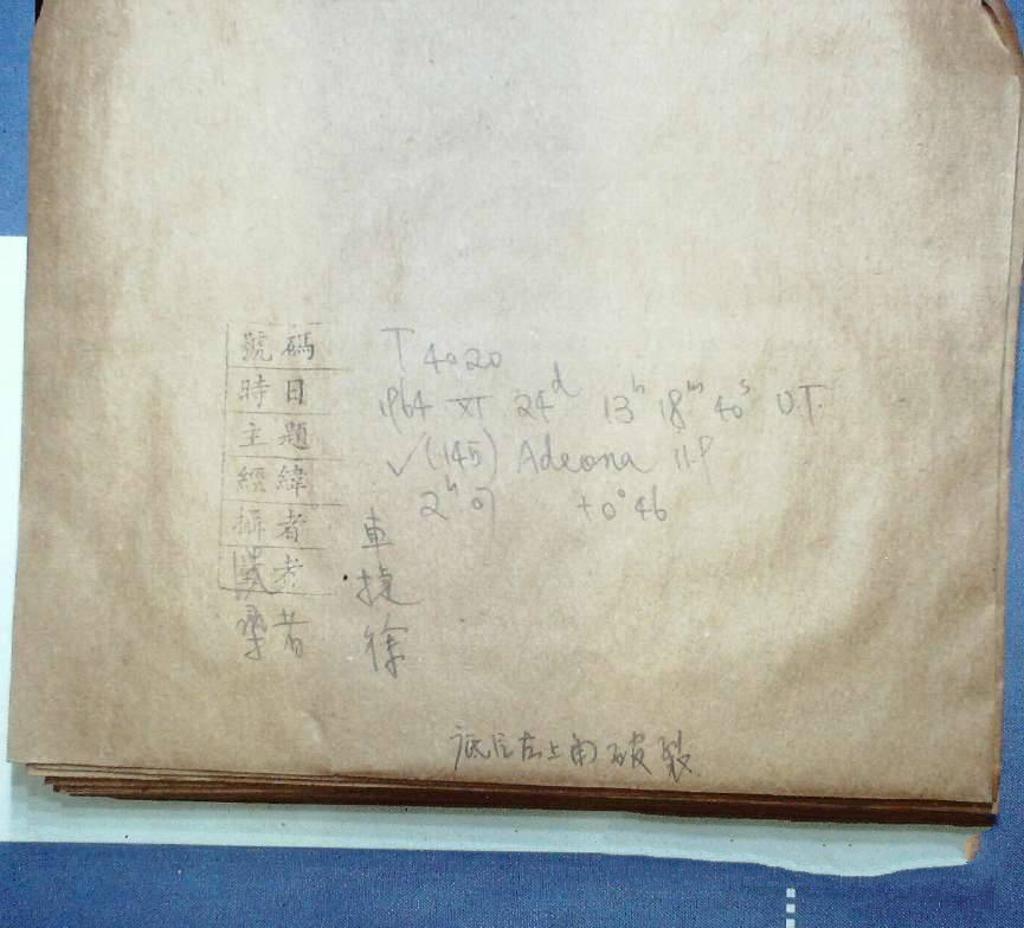 號碼 T 4020
時日 1964 XI 24d 13h 18m 40s U.T.
主題 ✓(145) Adeona 11P
經緯 2h 07 +0°46
攝者 車
者 捷
者 徐
底片左上角破裂